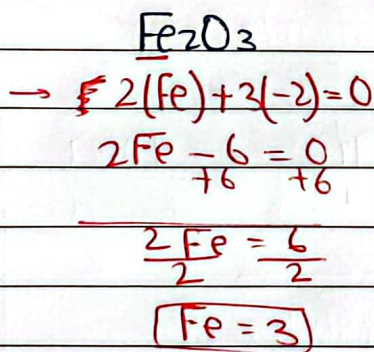 Fe2O3
→ 2(Fe)+3(-2)=0
2Fe - 6 = 0
+6 +6
2Fe = 6
2 2
Fe = 3